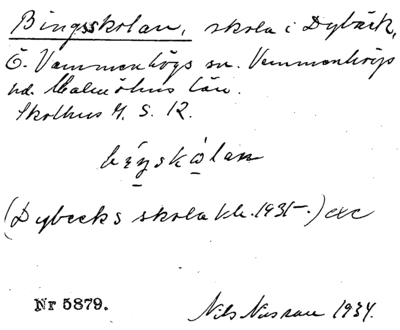 Bingsskolan, skola i Dybäck,
Ö. Vemmenhögs sn. Vemmenhögs
hd. Malmöhus län.
Skolhus
bingskolan
(Dybecks skola 1931-)
Nr 5879.
Nils 1934.